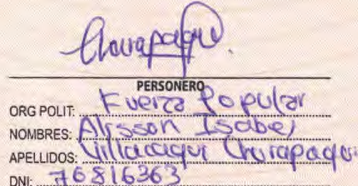 PERSONERO
ORG POLIT: Fuerza Popular
NOMBRES: Alisson Isabel
APELLIDOS: Villacaqui Churapaqui
DNI: 76816363